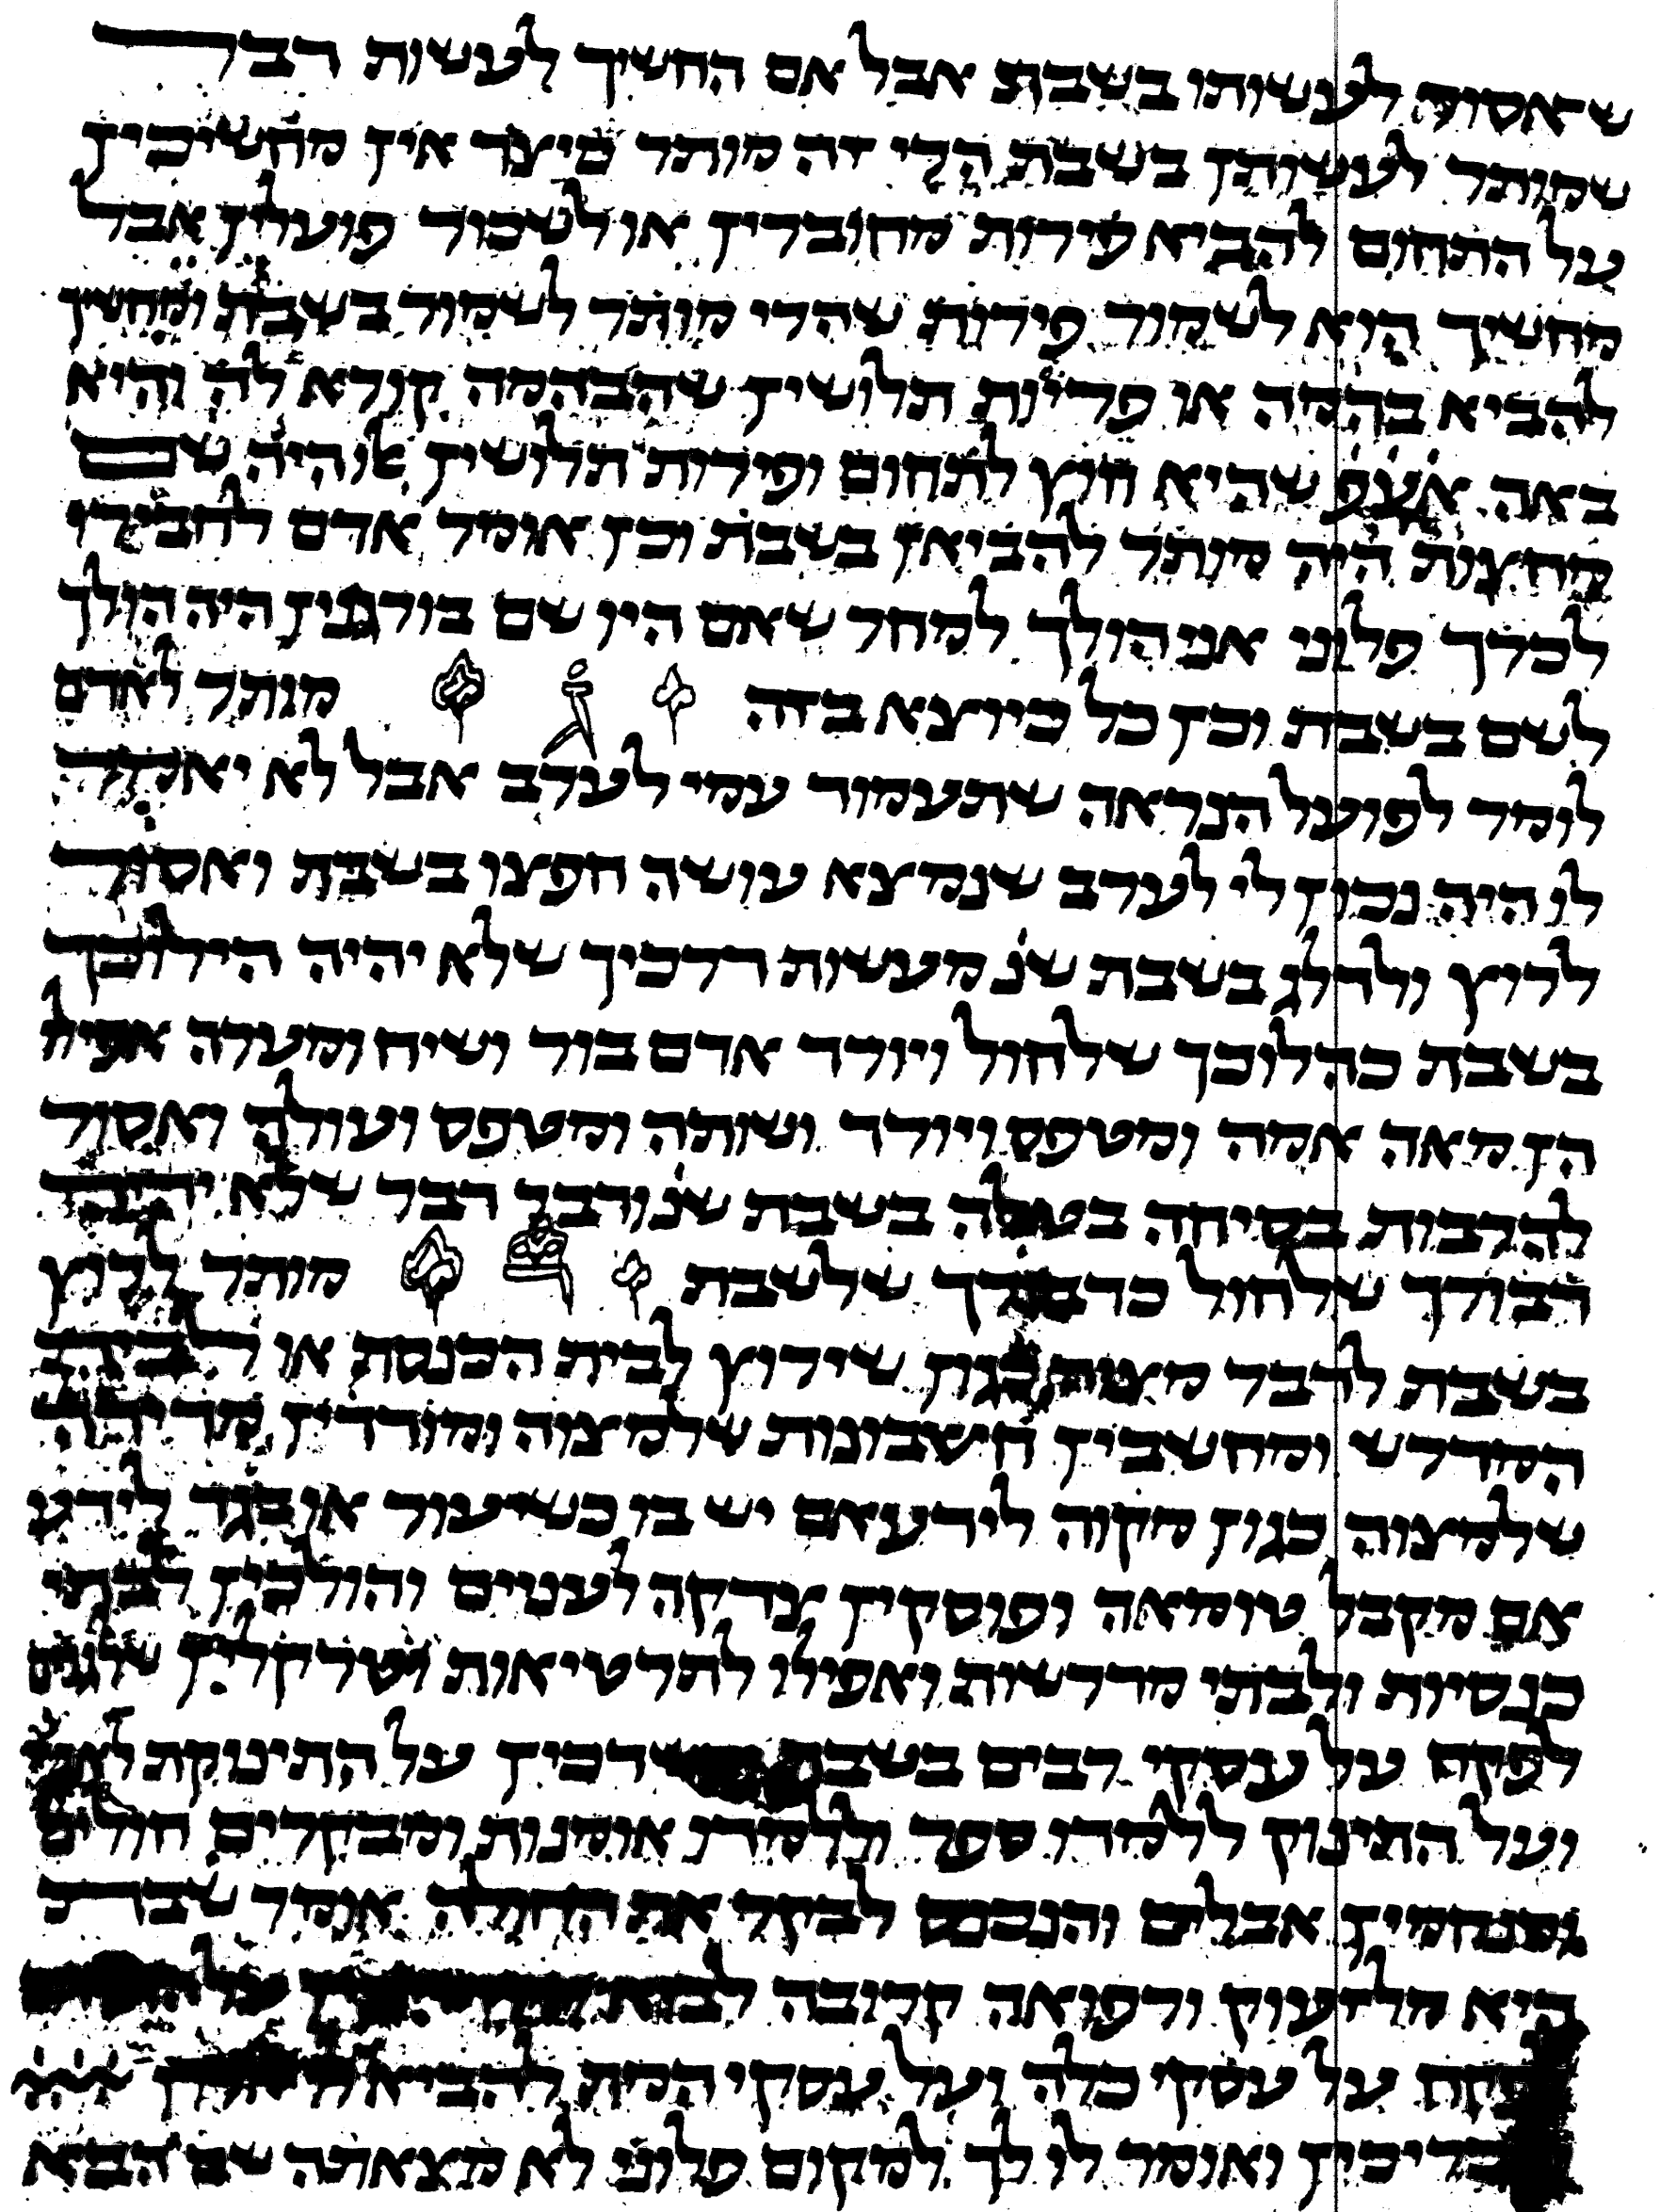 שאסור לעשותו בשבת אבל אם החשיך לעשות דבר
שמותר לעשותן בשבת הרי זה מותר כיצד אין מחשיכין
על התחום להביא פירות מחוברין או לשכור פועלין אבל
מחשיך הוא לשמור פירות שהרי מותר לשמור בשבת ומחשיך
להביא בהמה או פריות תלושין שהבהמה קורא לה והיא
באה אעפ שהיא חוץ לתחום ופירות תלושין אלו היה שם
מחצות היה מותר להביאן בשבת וכן אומר אדם לחבירו
לכרך פלוני אני הולך למחר שאם היו שם בורגנין היה הולך
לשם בשבת וכן כל כיוצא בזה מותר לאדם
לומר לפועל הנראה שתעמוד עמי לערב אבל לא יאמר
לו היה נכון לי לערב שנמצא עושה חפצו בשבת ואסור
לרוץ ולדלג בשבת שנ מעשות דרכיך שלא יהיה הילוכך
בשבת כהלוכך שלחול ויורד אדם בור ושיח ומערה אפילו
הן מאה אמה ומטפס ויורד ושותה ומטפס ועולה ואסור
להרבות בסיחה בטלה בשבת שנ ודבר דבר שלא יהיה
דבורך שלחול כדבורך שלשבת מותר לרוץ
בשבת לדבר מצוה כגון שירוץ לבית הכנסת או לבית
המדרש ומחשבין חישבונות שלמצוה ומודדין מדידה
שלמצוה כגון מקוה לידע אם יש בו כשיעור או בגד לידע
אם מקבל טומאה ופוסקין צדקה לעניים והולכין לבתי
כנסיות ולבתי מדרשות ואפילו לתרטיאות וטרקלין שלגוים
לפקח על עסקי רבים בשבת ומשדכין על התינוקת לארס
ועל התינוק ללמדו ספר וללמדו אומנות ומבקרים חולים
ומנחמין אבלים והנכנס לבקר את החולה אומר שבת
היא מלזעוק ורפואה קרובה לבוא ומחשיכין על
לפקח על עסקי כלה ועל עסקי המת להביא לו ארון
ותכריכין ואומר לו לך למקום פלוני לא מצאתה שם הבא